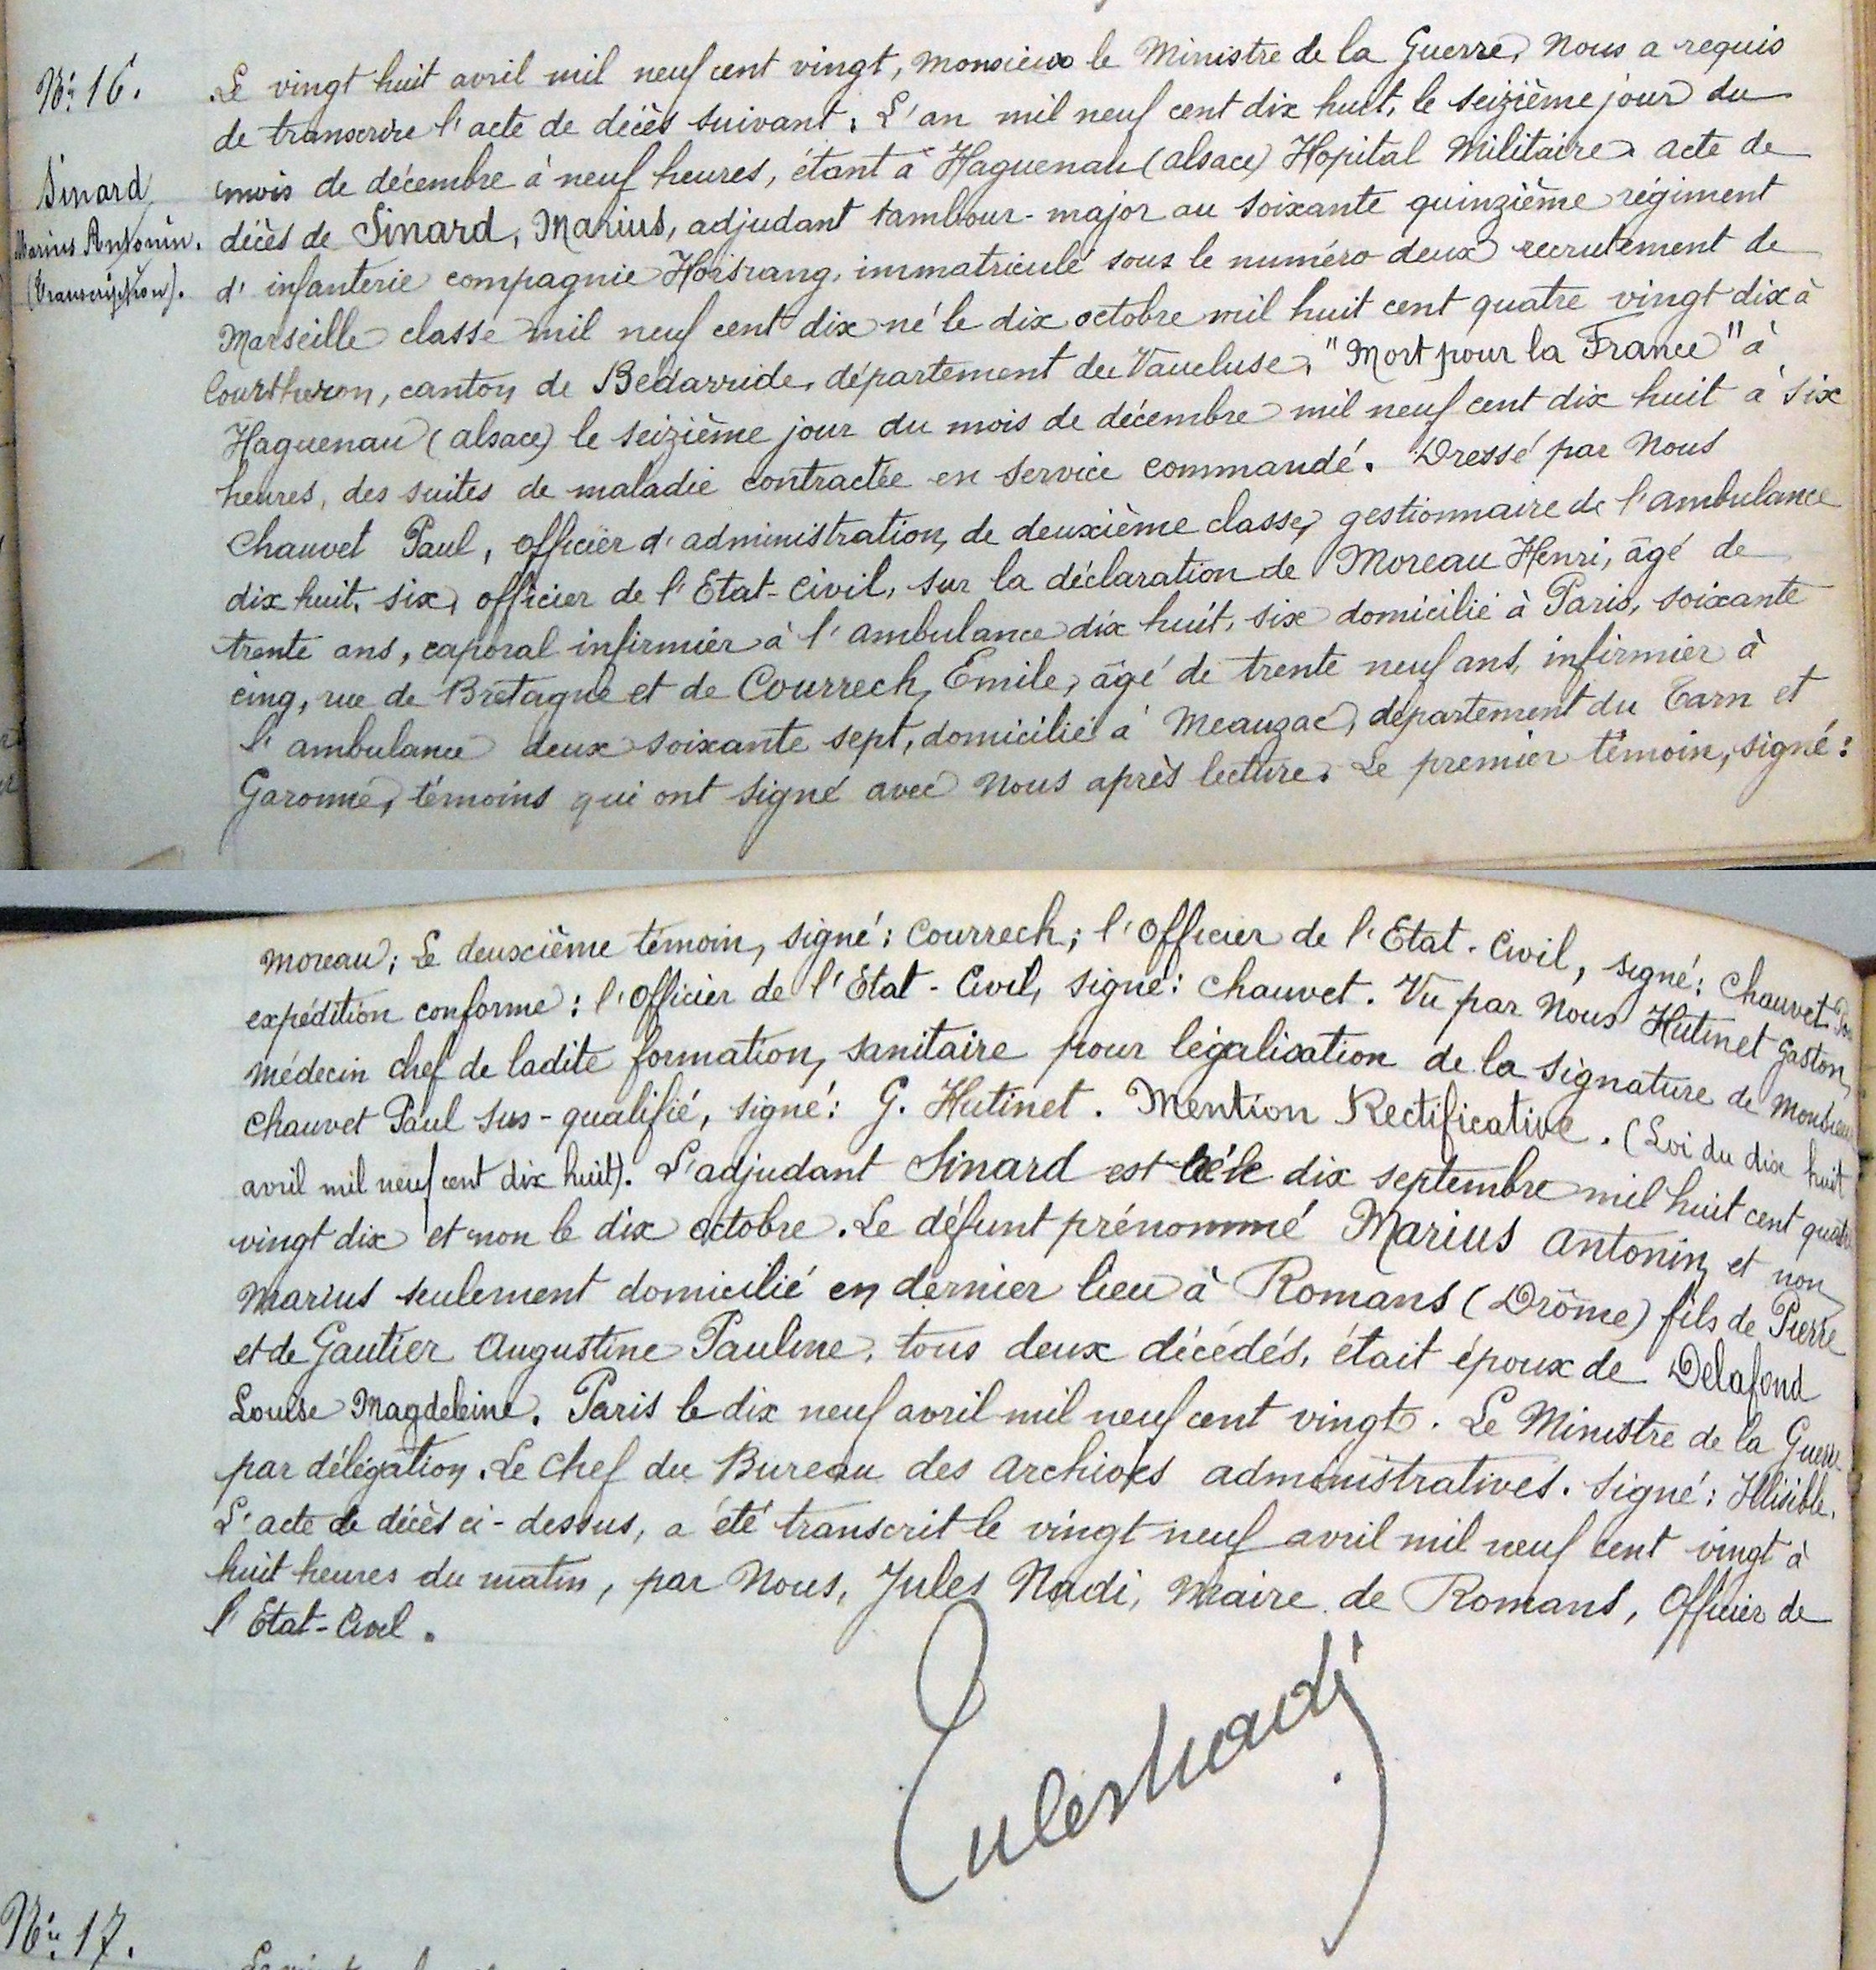 N° 16.
Sinard
Marius Antonin.
(Transcription).
Le vingt huit avril mil neuf cent vingt, Monsieur le Ministre de la Guerre, Nous a requis
de transcrire l'acte de décès suivant : L'an mil neuf cent dix huit, le seizième jour du
mois de décembre à neuf heures, étant à Haguenau (alsace) Hopital Militaire. acte de
décès de Sinard, Marius, adjudant tambour-major au soixante quinzième régiment
d'infanterie compagnie Horsrang, immatriculé sous le numéro deux recrutement de
Marseille classe mil neuf cent dix né le dix octobre mil huit cent quatre vingt dix à
Courtheron, canton de Bédarride, département du Vaucluse, "Mort pour la France" à
Haguenau (alsace) le seizième jour du mois de décembre mil neuf cent dix huit à six
heures, des suites de maladie contractée en service commandé. Dressé par Nous
Chauvet Paul, officier d'administration, de deuxième classe, gestionnaire de l'ambulance
dix huit, six, officier de l'Etat-civil, sur la déclaration de Moreau Henri, âgé de
trente ans, caporal infirmier à l'ambulance dix huit, six domicilié à Paris, soixante
cinq, rue de Bretagne et de Courrech, Emile, âgé de trente neuf ans, infirmier à
l'ambulance deux soixante sept, domicilié à Meauzac, département du Tarn et
Garonne, témoins qui ont signé avec Nous après lecture. Le premier témoin, signé :
Moreau ; Le deuxième témoin, signé : Courrech ; l'Officier de l'Etat-Civil, signé : Chauvet
expédition conforme : l'Officier de l'Etat-Civil, signé : Chauvet. Vu par Nous Hutinet Gaston,
médecin chef de ladite formation, sanitaire pour légalisation de la signature de Monsieur
Chauvet Paul sus-qualifié, signé : G. Hutinet. Mention Rectificative. (Loi du dix huit
avril mil neuf cent dix huit). L'adjudant Sinard est né le dix septembre mil huit cent quatre
vingt dix et non le dix octobre. Le défunt prénommé Marius Antonin, et non
Marius seulement domicilié en dernier lieu à Romans (Drôme) fils de Pierre
et de Gautier Augustine Pauline, tous deux décédés, était époux de Delafond
Louise Magdeleine. Paris le dix neuf avril mil neuf cent vingt. Le Ministre de la Guerre
par délégation. Le Chef du Bureau des Archives administratives. Signé : Illisible.
L'acte de décès ci-dessus, a été transcrit le vingt neuf avril mil neuf cent vingt à
huit heures du matin, par Nous, Jules Nadi, Maire de Romans, Officier de
l'Etat-Civil.
Jules Nadi
N° 17.